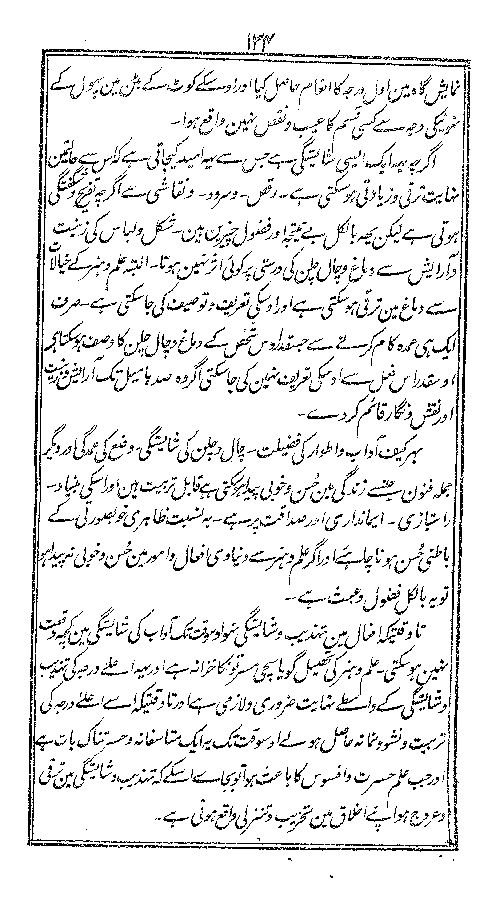 ۱۴۴
نمایش گاہ مین اول درجہ کا انعام حاصل کیا اور اوسکے کوٹ کے بٹن مین پھول کے
ہونیکی وجہ سے کسی قسم کا عیب و نقص نہین واقع ہوا۔
اگرچہ یہ ایک ایسی شایستگی ہے جس سے یہ امید کیجاتی ہے کہ اس سے حالتین
نہایت ترقی و زیادتی ہوسکتی ہے۔ رقص۔ و سرود۔ و نقاشی سے اگرچہ تفریح و شگفتگی
ہوتی ہے لیکن یہہ بالکل بے نتیجہ اور فضول چیزین ہین۔ شکل و لباس کی زینت
و آرایش سے دماغ و چال چلن کی درستی پر کوئی اثر نہین ہوتا۔ البتہ علم و ہنر کے خیالات
سے دماغ مین ترقی ہوسکتی ہے اور اوسکی تعریف و توصیف کی جاسکتی ہے۔ صرف
ایک ہی عمدہ کام کرنے سے جسقدر اوس شخص کے دماغ و چال چلن کا وصف ہوسکتا ہے
اوسقدر اس فعل سے اوسکی تعریف نہین کی جاسکتی اگر وہ صدہا میل تک آرایش و زینت
اور نقش و نگار قائم کردے۔
بہر کیف آداب و اطوار کی فضیلت۔ چال و چلن کی شایستگی۔ وضع کی عمدگی اور دیگر
جملہ فنون جنسے زندگی مین حُسن و خوبی پیدا ہوسکتی ہے قابل تربیت ہین اور اسکی بنیاد۔
راستبازی۔ ایمانداری اور صداقت پر ہے۔ بہ نسبت ظاہری خوبصورتی کے
باطنی حُسن ہونا چاہئے اور اگر علم و ہنر سے دنیاوی افعال و امور مین حُسن و خوبی نہ پیدا ہو
تو یہ بالکل فضول و عبث ہے۔
تاوقتیکہ افعال مین تہذیب و شایستگی نہو اوسوقت تک آداب کی شایستگی مین کچھ وقعت
نہین ہوسکتی۔ علم و ہنر کی تحصیل گویا سچی مسرتونکا خزانہ ہے اور یہ اعلے درجہ کی تہذیب
و شایستگی کے واسطے نہایت ضروری و لازمی ہے اور تاوقتیکہ اسے اعلے درجہ کی
تربیت و نشوونما نہ حاصل ہولے اوسوقت تک یہ ایک متاسفانہ و حسرتناک بات ہے
اور جب علم حسرت و افسوس کا باعث ہوا تو بجاے اسکے کہ تہذیب و شایستگی مین ترقی
و عروج ہو اپنے اخلاق مین تخریب و تنزلی واقع ہوتی ہے۔